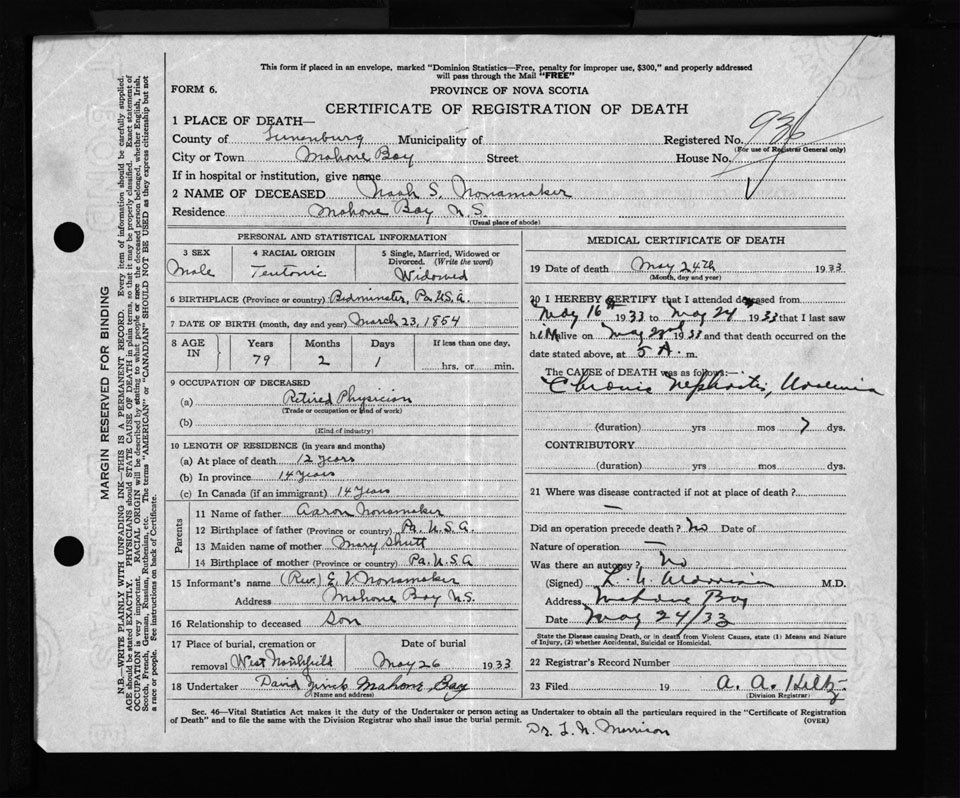 This form if placed in an envelope, marked "Dominion Statistics—Free, penalty for improper use, $300," and properly addressed
will pass through the Mail "FREE"
FORM 6.
PROVINCE OF NOVA SCOTIA
CERTIFICATE OF REGISTRATION OF DEATH
1 PLACE OF DEATH—
County of Lunenburg Municipality of Registered No. 936
(For use of Registrar General only)
City or Town Mahone Bay Street House No.
If in hospital or institution, give name
2 NAME OF DECEASED Noah S. Nonamaker
Residence Mahone Bay N.S.
(Usual place of abode)
PERSONAL AND STATISTICAL INFORMATION
3 SEX 4 RACIAL ORIGIN 5 Single, Married, Widowed or Divorced. (Write the word)
Male Teutonic Widowed
6 BIRTHPLACE (Province or country) Bedminster, Pa. U.S.A.
7 DATE OF BIRTH (month, day and year) March 23, 1854
8 AGE IN Years Months Days If less than one day,
79 2 1 hrs. or min.
9 OCCUPATION OF DECEASED
(a) Retired Physician
(Trade or occupation or kind of work)
(b)
(Kind of industry)
10 LENGTH OF RESIDENCE (in years and months)
(a) At place of death 12 years
(b) In province 14 years
(c) In Canada (if an immigrant) 14 years
Parents
11 Name of father Aaron Nonamaker
12 Birthplace of father (Province or country) Pa. U.S.A.
13 Maiden name of mother Mary Shutt
14 Birthplace of mother (Province or country) Pa. U.S.A
15 Informant's name (Rev.) E. V. Nonamaker
Address Mahone Bay N.S.
16 Relationship to deceased Son
17 Place of burial, cremation or removal West Northfield Date of burial May 26 1933
18 Undertaker David Zinck Mahone Bay
(Name and address)
MEDICAL CERTIFICATE OF DEATH
19 Date of death May 24th 1933
(Month, day and year)
20 I HEREBY CERTIFY that I attended deceased from
May 16th 1933 to May 24th 1933 that I last saw
him alive on May 23rd 1933 and that death occurred on the
date stated above, at 5 A. m.
The CAUSE of DEATH was as follows:—
Chronic Nephritis, Uraemia
(duration) yrs mos 7 dys.
CONTRIBUTORY
(duration) yrs. mos. dys.
21 Where was disease contracted if not at place of death?
—
Did an operation precede death? No Date of
Nature of operation —
Was there an autopsy? No
(Signed) L. N. Morrison M.D.
Address Mahone Bay
Date May 24/33
State the Disease causing Death, or in death from Violent Causes, state (1) Means and Nature
of Injury, (2) whether Accidental, Suicidal or Homicidal.
22 Registrar's Record Number
23 Filed 19 A. A. Hiltz
(Division Registrar)
Sec. 46—Vital Statistics Act makes it the duty of the Undertaker or person acting as Undertaker to obtain all the particulars required in the "Certificate of Registration
of Death" and to file the same with the Division Registrar who shall issue the burial permit. (OVER)
Dr. L. N. Morrison
MARGIN RESERVED FOR BINDING
N.B.—WRITE PLAINLY WITH UNFADING INK—THIS IS A PERMANENT RECORD. Every item of information should be carefully supplied.
AGE should be stated EXACTLY. PHYSICIANS should STATE CAUSE OF DEATH in plain terms, so that it may be properly classified. Exact statement of
OCCUPATION is very important. RACIAL ORIGIN will be described by stating to what people or race the deceased person belonged, whether English, Irish,
Scotch, French, German, Russian, Ruthenian, etc. The terms "AMERICAN" or "CANADIAN" SHOULD NOT BE USED as they express citizenship but not
a race or people. See instructions on back of Certificate.